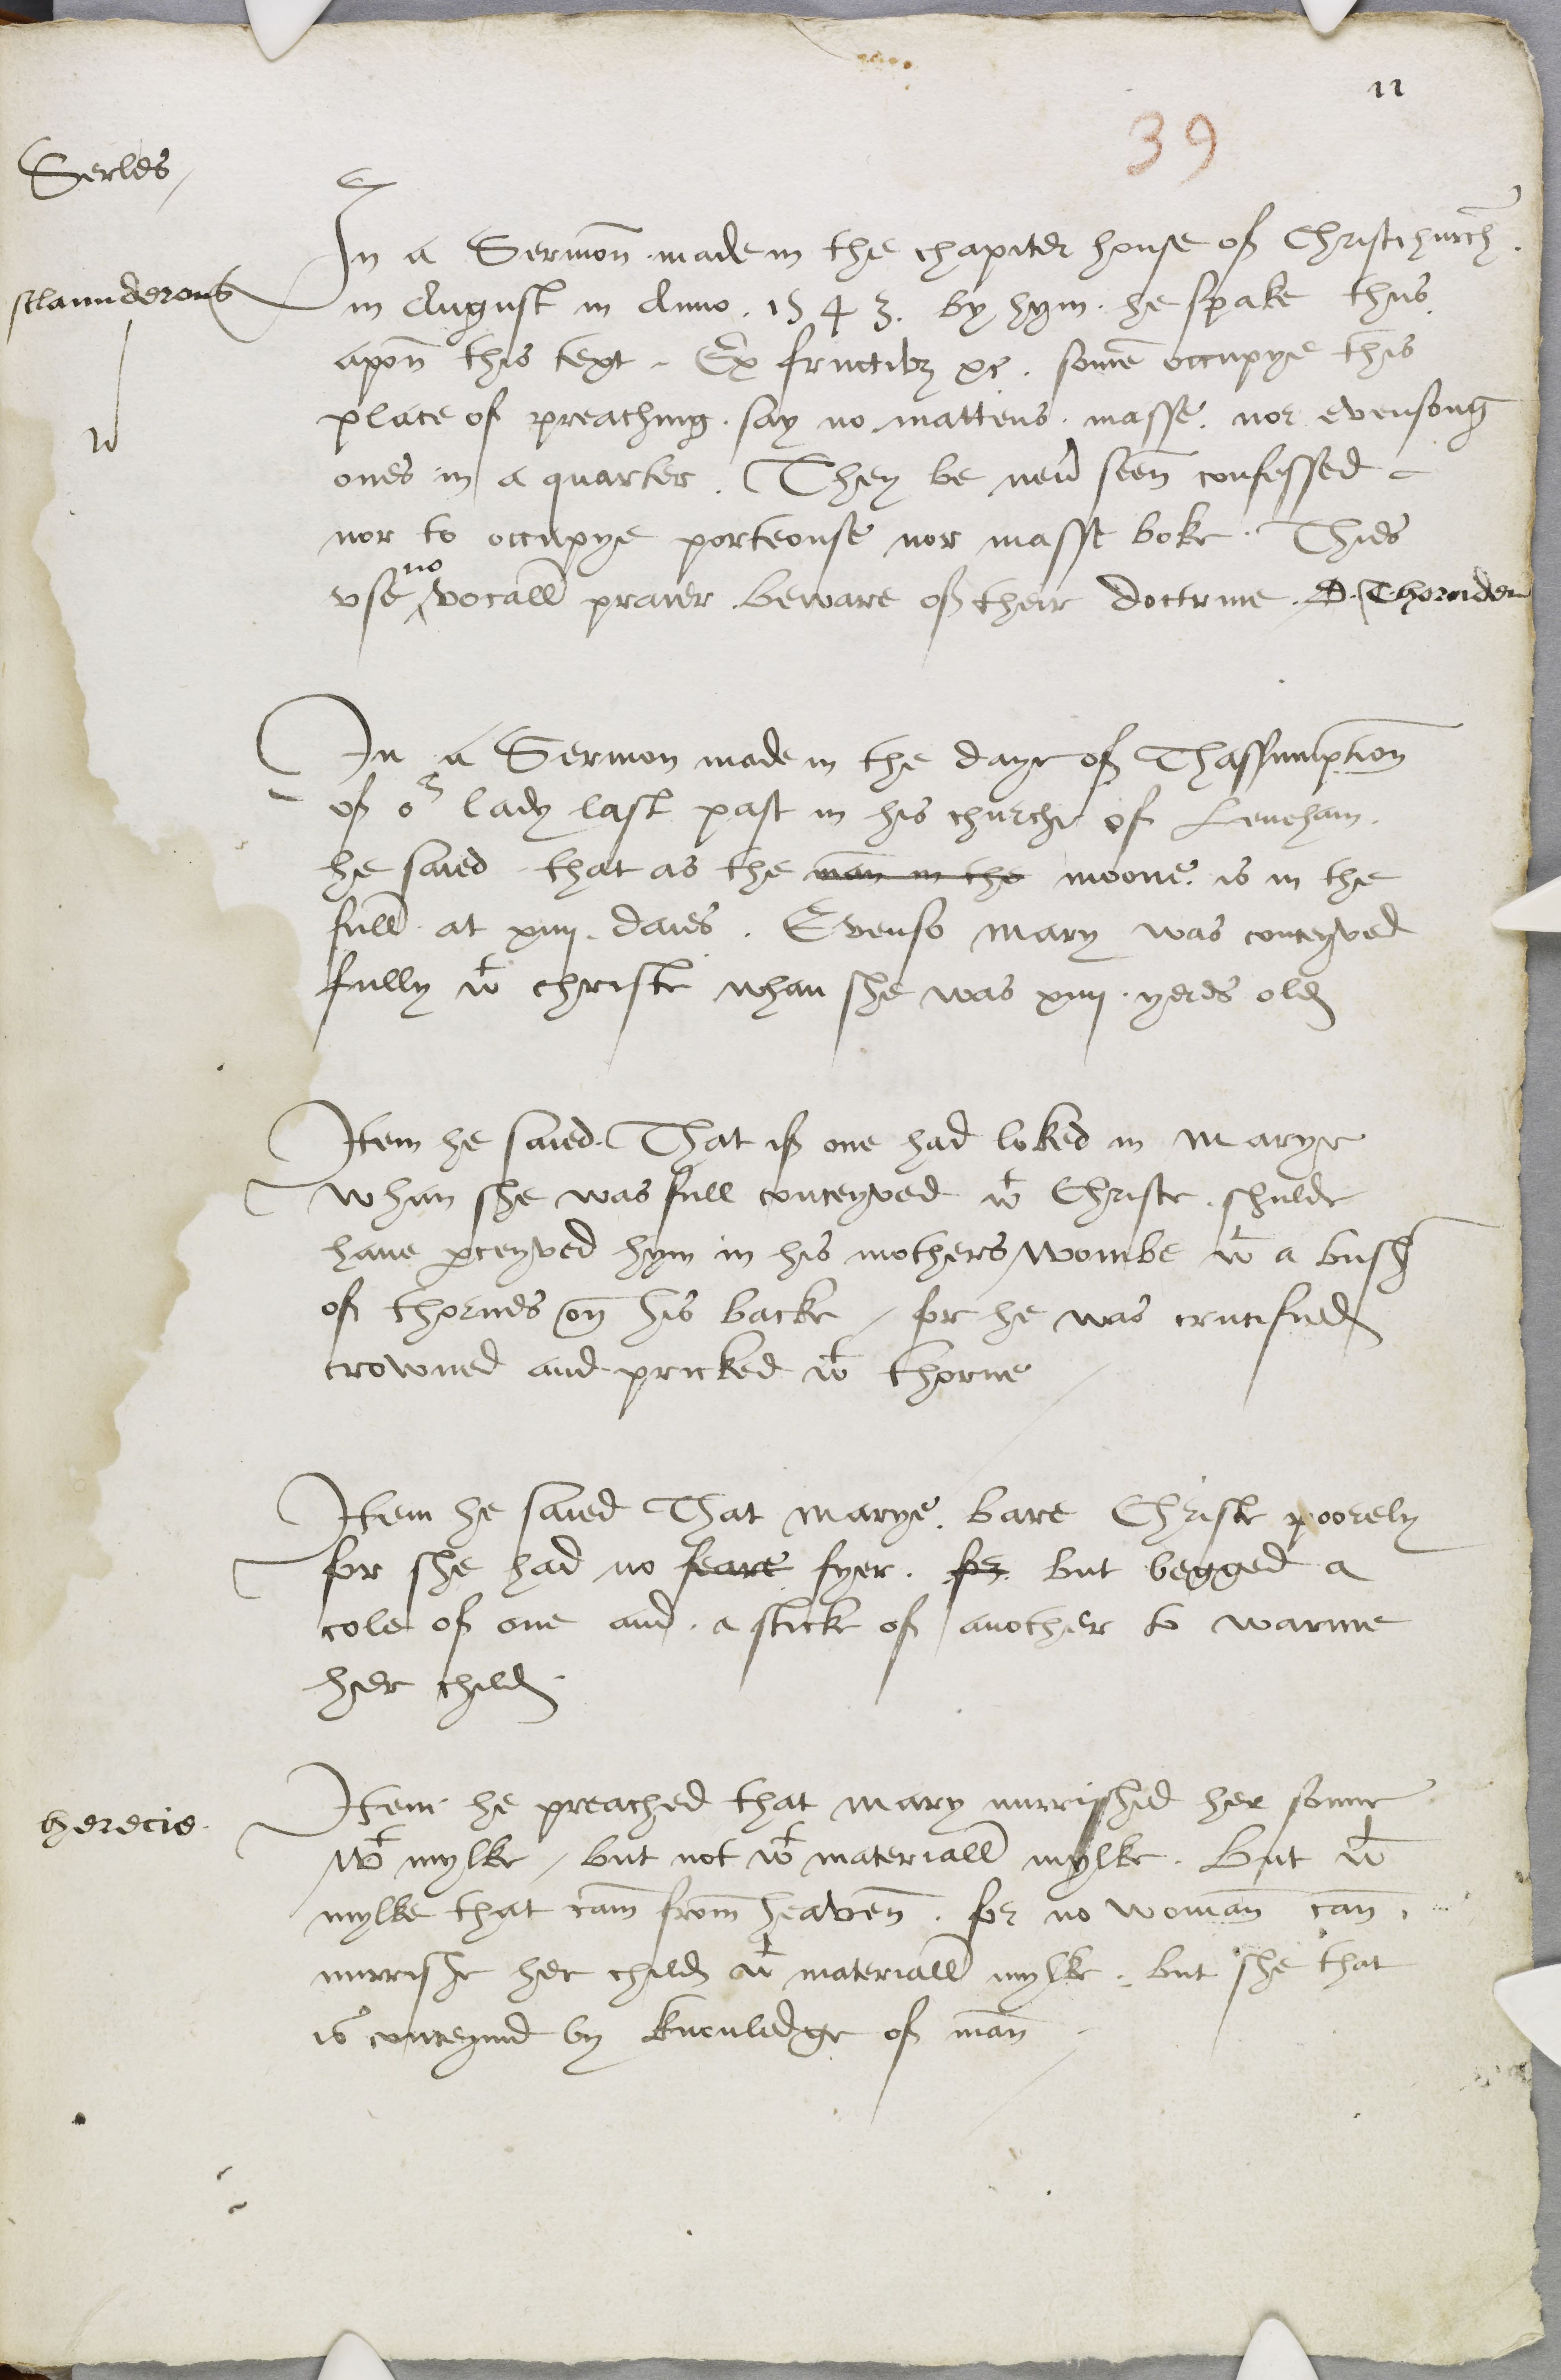 11
39
Serles
In a Sermon made in the chapiter house of Christchurch.
sclaunderous
in August in Anno. 1543. by hym. he spake thus
apon this text. Ex fructibz &c. some occupye this
place of preaching. say no mattens. masse. nor evensong
ones in a quarter. They be neu' seen confessed
nor to occupye porteouse nor masse boke. Thies
no
vse ^ vocall praier. beware of their doctrine. D. Thornden
In a Sermon made in the daye of Thassumption
of or lady last past in his churche of Leneham.
he saied that as the man in the moone. is in the
full at xiiij. daies. Evenso Mary was conceyved
fully wt christe whan she was xiiij. yeres old
Item he saied. That if one had loked in Marye
whan she was full conceyved wt Christe. shulde
haue pceyved hym in his mothers wombe wt a bush
of thornes on his backe / for he was crucified
crowned and pricked wt thorne
Item he saied That Marye. bare Christe poorely
for she had no feare fyer. for but begged a
cole of one and. a sticke of another to warme
her child.
herecie.
Item he preached that Mary nurrished her sonne
wt mylke / but not wt materiall mylke. But wt
mylke that cam from heaven. for no woman can.
nurrishe her child wt materiall mylke. but she that
is conceyued by knouledge of man